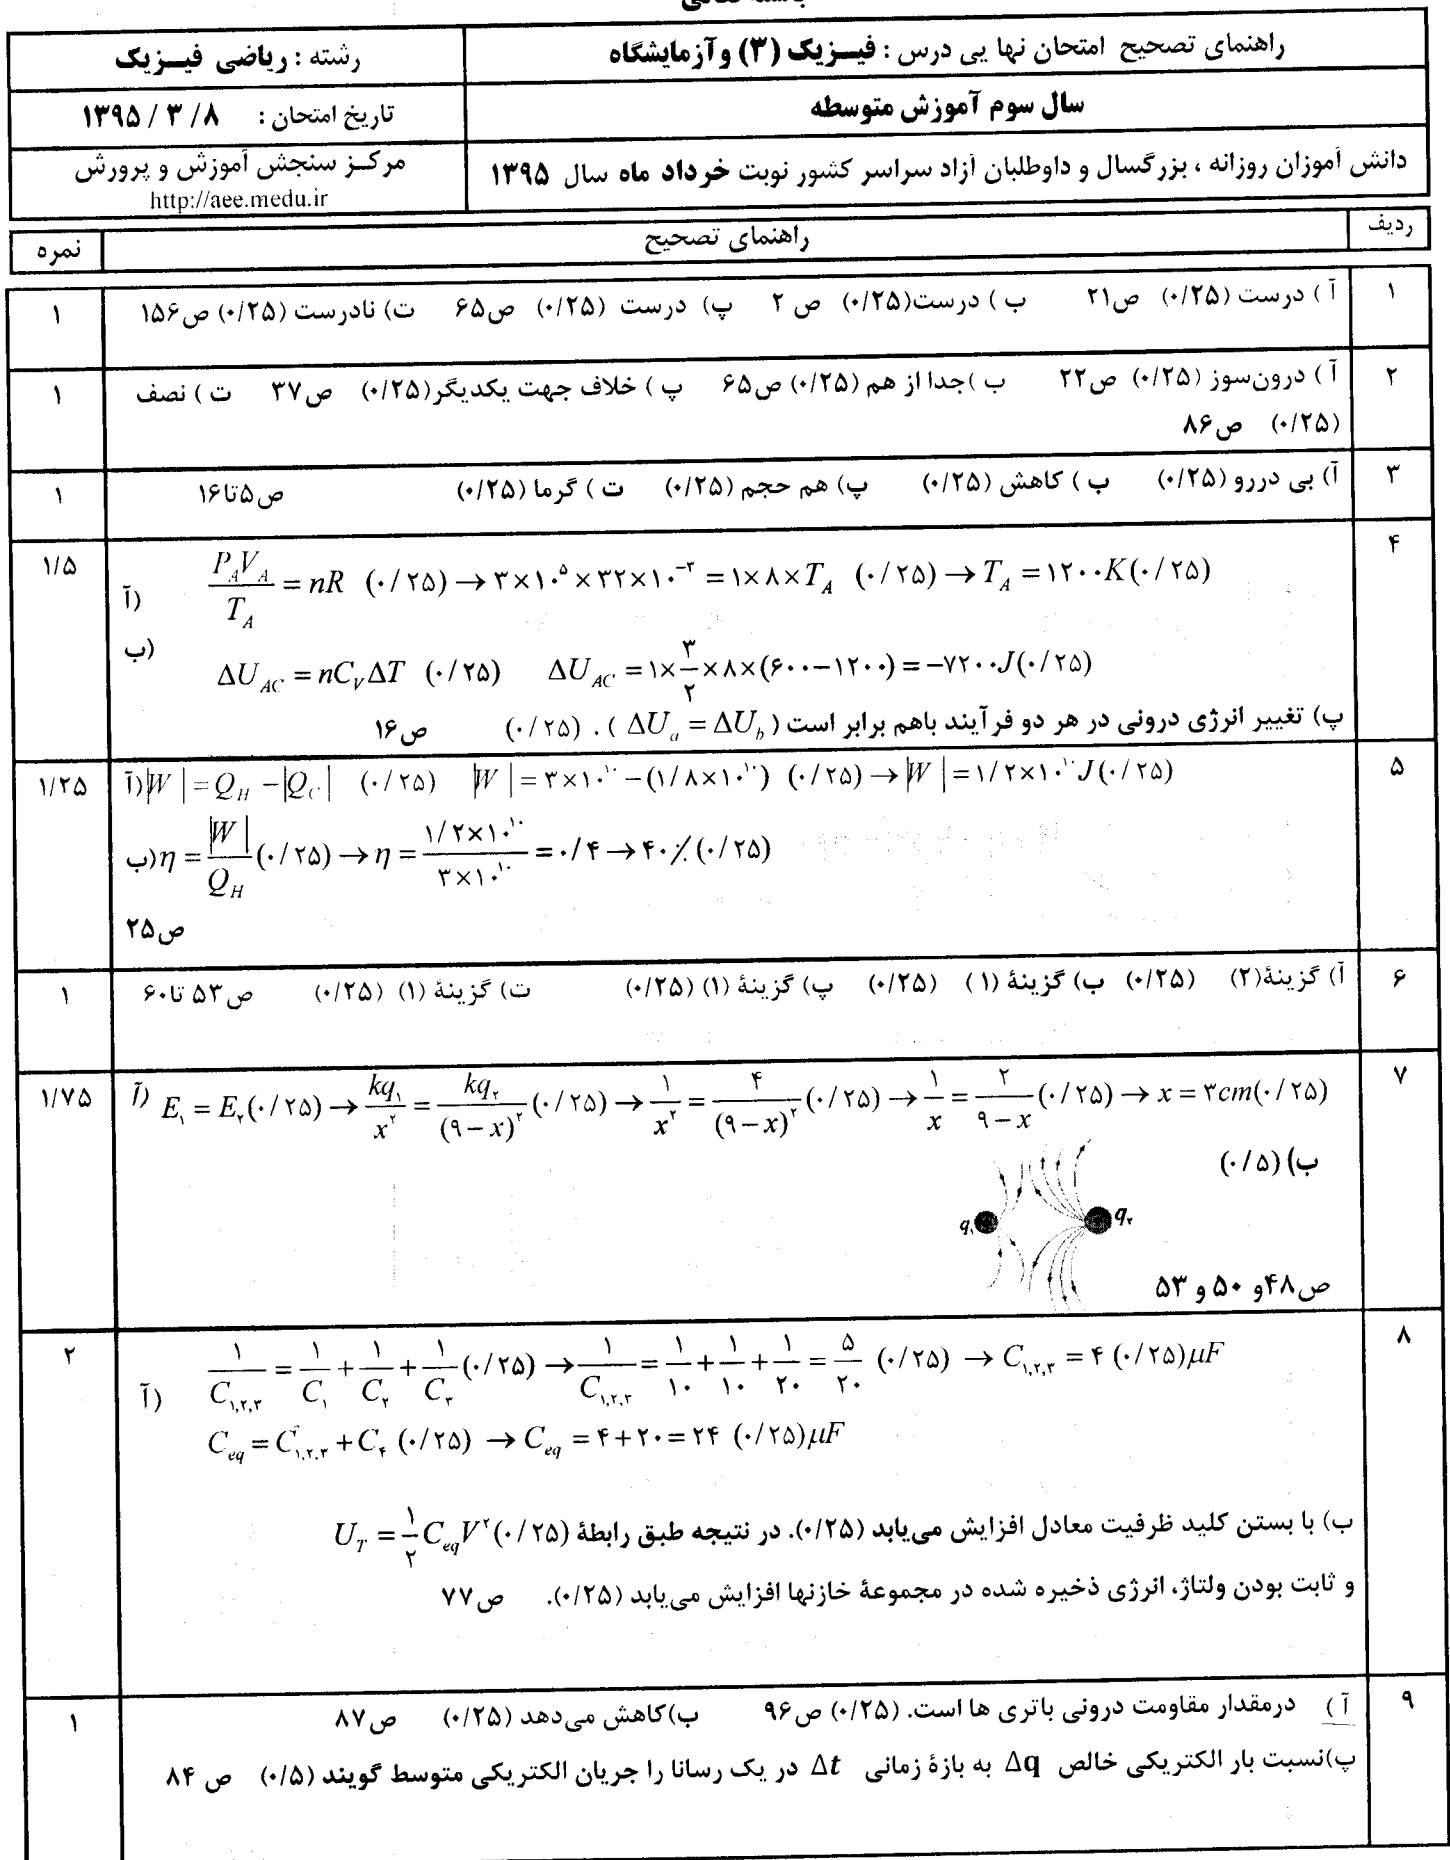 راهنمای تصحیح امتحان نها یی درس : فیــزیک (۳) وآزمایشگاه
رشته : ریاضی فیــزیک
سال سوم آموزش متوسطه
تاریخ امتحان : ۸/ ۳ / ۱۳۹۵
دانش آموزان روزانه ، بزرگسال و داوطلبان آزاد سراسر کشور نوبت خرداد ماه سال ۱۳۹۵
مرکــز سنجش آموزش و پرورش
http://aee.medu.ir
ردیف راهنمای تصحیح نمره
۱ آ ) درست (۰/۲۵) ص۲۱ ب ) درست(۰/۲۵) ص ۲ پ) درست (۰/۲۵) ص۶۵ ت) نادرست (۰/۲۵) ص۱۵۶ ۱
۲ آ ) درون‌سوز (۰/۲۵) ص۲۲ ب )جدا از هم (۰/۲۵) ص۶۵ پ ) خلاف جهت یکدیگر(۰/۲۵) ص۳۷ ت ) نصف ۱
(۰/۲۵) ص۸۶
۳ آ) بی دررو (۰/۲۵) ب ) کاهش (۰/۲۵) پ) هم حجم (۰/۲۵) ت ) گرما (۰/۲۵) ص۵تا۱۶ ۱
۴ ۱/۵
آ) P_A V_A / T_A = nR (۰/۲۵) → ۳×۱۰^۵ × ۳۲×۱۰^-۳ = ۱×۸×T_A (۰/۲۵) → T_A = ۱۲۰۰K(۰/۲۵)
ب) ΔU_AC = nC_VΔT (۰/۲۵) ΔU_AC = ۱×۳/۲×۸×(۶۰۰−۱۲۰۰) = −۷۲۰۰J(۰/۲۵)
پ) تغییر انرژی درونی در هر دو فرآیند باهم برابر است ( ΔU_a = ΔU_b ) . (۰/۲۵) ص۱۶
۵ ۱/۲۵
آ) |W| = Q_H − |Q_C| (۰/۲۵) |W| = ۳×۱۰^۱۰ − (۱/۸×۱۰^۱۰) (۰/۲۵) → |W| = ۱/۲×۱۰^۱۰ J(۰/۲۵)
ب) η = |W| / Q_H (۰/۲۵) → η = ۱/۲×۱۰^۱۰ / ۳×۱۰^۱۰ = ۰/۴ → ۴۰٪(۰/۲۵)
ص۲۵
۶ آ) گزینهٔ(۲) (۰/۲۵) ب) گزینهٔ (۱) (۰/۲۵) پ) گزینهٔ (۱) (۰/۲۵) ت) گزینهٔ (۱) (۰/۲۵) ص۵۳ تا۶۰ ۱
۷ ۱/۷۵
آ) E_۱ = E_۲(۰/۲۵) → kq_۱ / x^۲ = kq_۲ / (۹−x)^۲ (۰/۲۵) → ۱/x^۲ = ۴/(۹−x)^۲ (۰/۲۵) → ۱/x = ۲/(۹−x) (۰/۲۵) → x = ۳cm(۰/۲۵)
ب) (۰/۵)
q_۱ q_۲
ص۴۸و ۵۰ و ۵۳
۸ ۲
آ) ۱/C_۱,۲,۳ = ۱/C_۱ + ۱/C_۲ + ۱/C_۳ (۰/۲۵) → ۱/C_۱,۲,۳ = ۱/۱۰ + ۱/۱۰ + ۱/۲۰ = ۵/۲۰ (۰/۲۵) → C_۱,۲,۳ = ۴ (۰/۲۵)μF
C_eq = C_۱,۲,۳ + C_۴ (۰/۲۵) → C_eq = ۴+۲۰ = ۲۴ (۰/۲۵)μF
ب) با بستن کلید ظرفیت معادل افزایش می‌یابد (۰/۲۵). در نتیجه طبق رابطهٔ U_T = ۱/۲ C_eq V^۲ (۰/۲۵)
و ثابت بودن ولتاژ، انرژی ذخیره شده در مجموعهٔ خازنها افزایش می‌یابد (۰/۲۵). ص۷۷
۹ آ ) درمقدار مقاومت درونی باتری ها است. (۰/۲۵) ص۹۶ ب)کاهش می‌دهد (۰/۲۵) ص۸۷ ۱
پ)نسبت بار الکتریکی خالص Δq به بازهٔ زمانی Δt در یک رسانا را جریان الکتریکی متوسط گویند (۰/۵) ص ۸۴